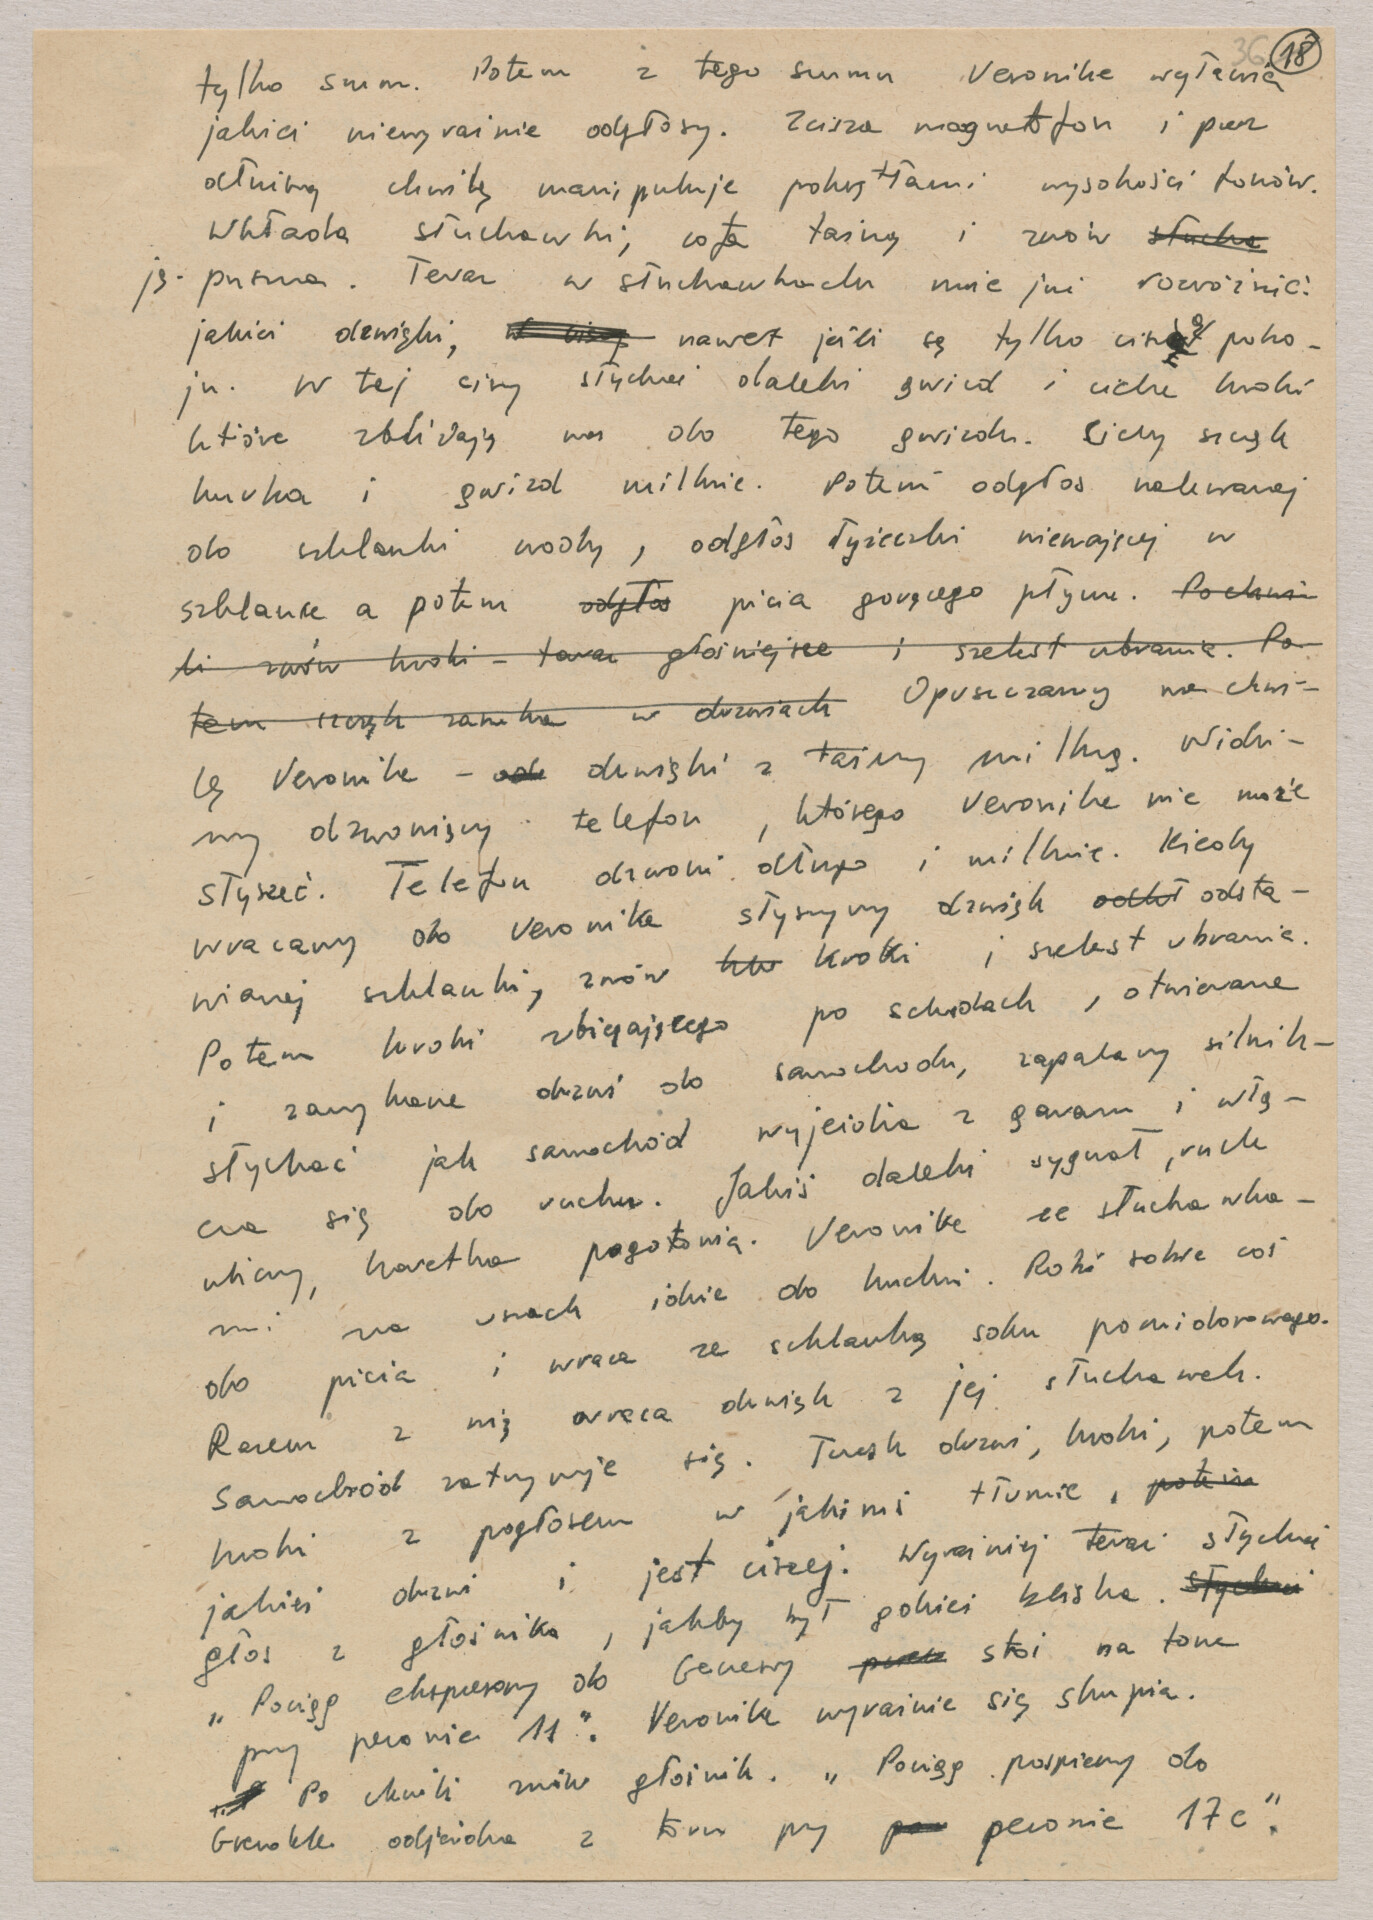 36 18
tylko szum. Potem z tego szumu Veronika wyławia
jakieś niewyraźnie odgłosy. Zcisza magnetofon i przez
dłuższą chwilę manipuluje pokrętłami wysokości tonów.
Wkłada słuchawki, cofa taśmę i znów słucha
ją puszcza. Teraz w słuchawkach może już rozróżnić
jakieś dzwięki, nawet jeśli są tylko ciszą poko-
ju. W tej ciszy słychać daleki gwizd i ciche kroki
które zbliżają nas do tego gwizdu. Cichy szczęk
kurka i gwizd milknie. Potem odgłos nalewanej
do szklanki wody, odgłos łyżeczki mieszającej w
szklance a potem odgłos picia gorącego płynu. Po chwi-
li znów kroki - teraz głośniejsze i szelest ubrania. Po-
tem szczęk zamka w drzwiach Opuszczamy na chwi-
lę Veronike - dzwięki z taśmy milkną. Widzi-
my dzwoniący telefon, którego Veronika nie może
słyszeć. Telefon dzwoni długo i milknie. Kiedy
wracamy do Veronika słyszymy dzwięk odsta-
wianej szklanki, znów kroki i szelest ubrania.
Potem kroki zbiegającego po schodach, otwierane
i zamykane drzwi do samochodu, zapalany silnik -
słychać jak samochód wyjeżdża z garażu i włą-
cza się do ruchu. Jakiś daleki sygnał, ruch
uliczny, karetka pogotowia. Veronika ze słuchawka-
mi na uszach idzie do kuchni. Robi sobie coś
do picia i wraca ze schlanką soku pomidorowego.
Razem z nią wraca dzwięk z jej słuchawek.
Samochód zatrzymuje się. Trzask drzwi, kroki, potem
kroki z pogłosem w jakimś tłumie, potem
jakieś drzwi i jest ciszej. Wyraźniej teraz słychać
głos z głośnika, jakby był gdzieś blisko. słychać
„Pociąg ekspresowy do Genewy przez stoi na torze
przy peronie 11". Veronika wyraźnie się skupia.
Po chwili znów głośnik. „Pociąg pospieszny do
Grenoble odjeżdża z toru przy peronie 17c".